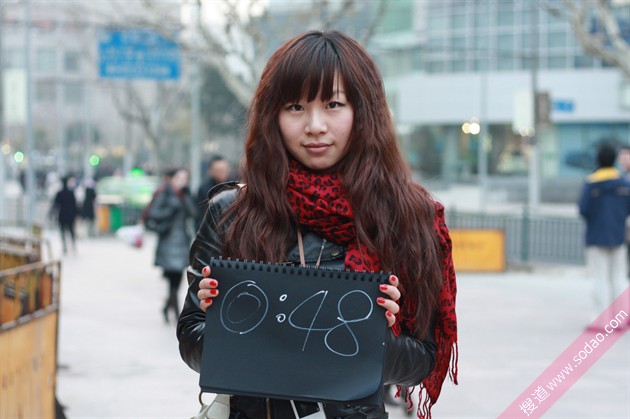 0:48
搜道 www.sodao.com